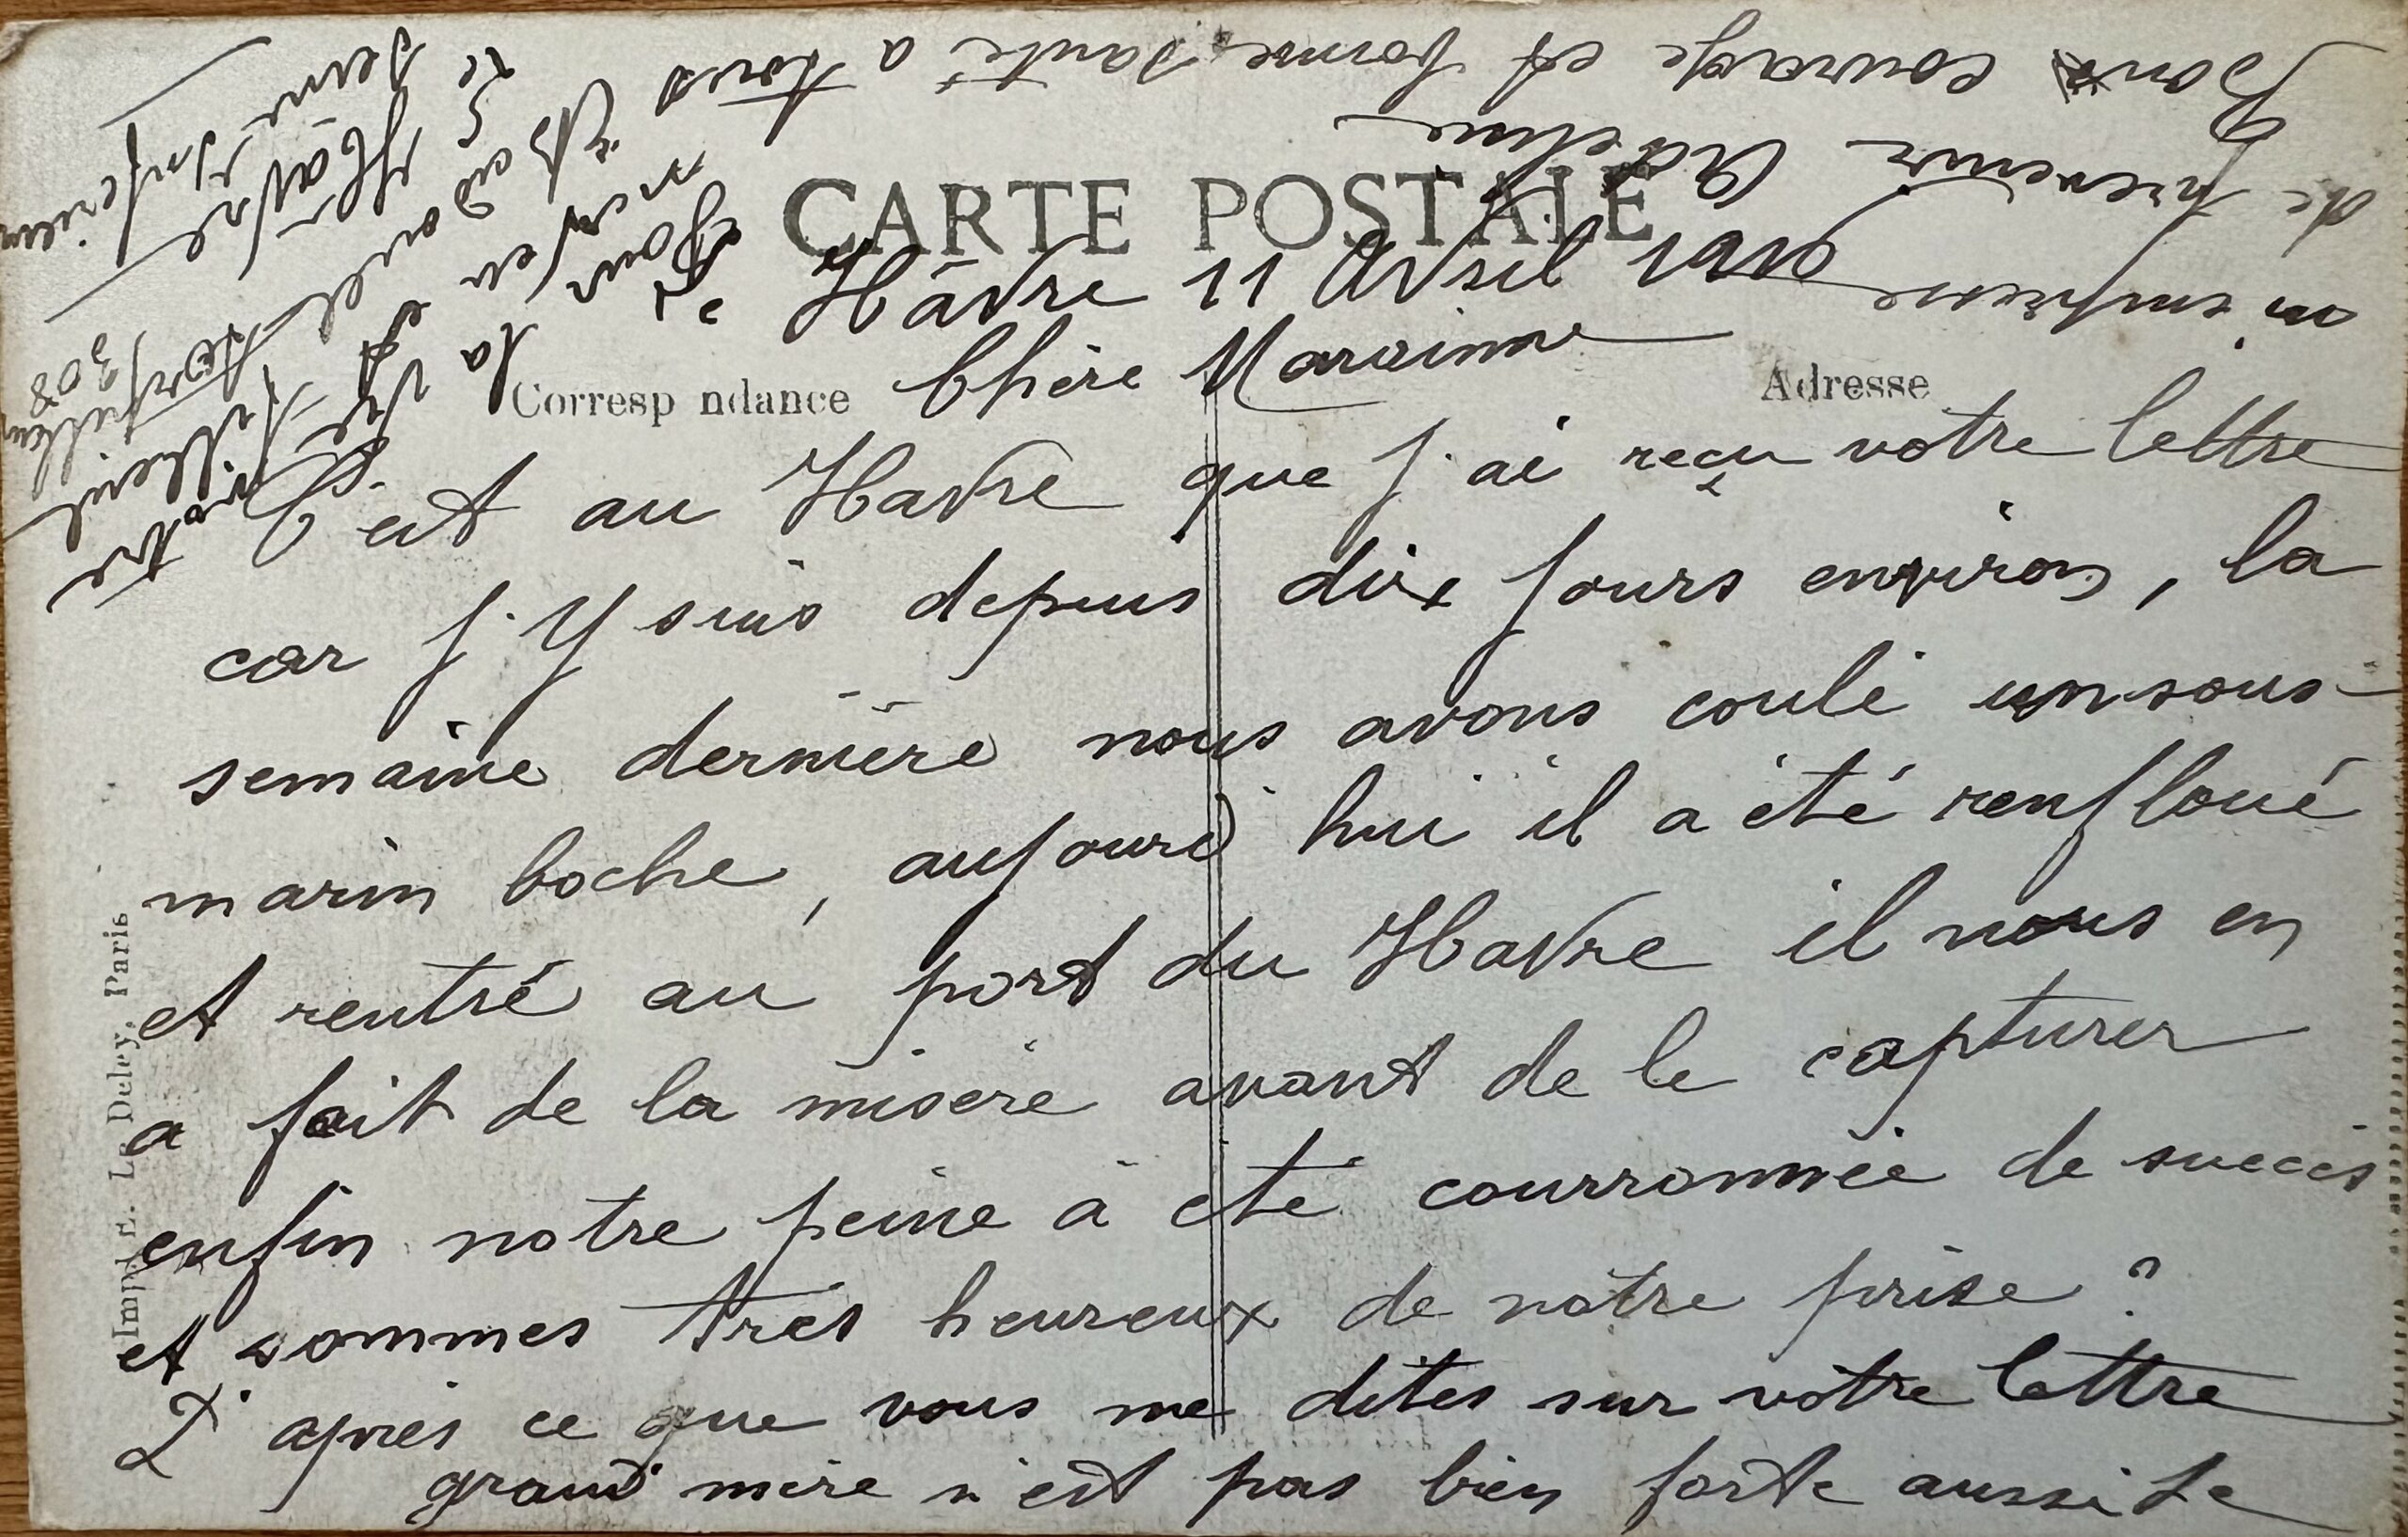 CARTE POSTALE
Correspondance
Adresse
Le Hâvre 11 Avril 1916
Chère Marraine
C'est au Havre que j'ai reçu votre lettre
car j'y suis depuis dix jours environ, la
semaine dernière nous avons coulé un sous-
marin boche, aujourd'hui il a été renfloué
et rentré au port du Havre il nous en
a fait de la misère avant de le capturer
enfin notre peine à été courronnée de succès
et sommes très heureux de notre prise?
D'après ce que vous me dites sur votre lettre
grand mère n'est pas bien forte aussi je
m'empresse
de prévenir Adeline
Bon courage et bonne santé a tous
votre filleul
308
Havre
Seine Inférieure
Imp. E. Le Deley, Paris